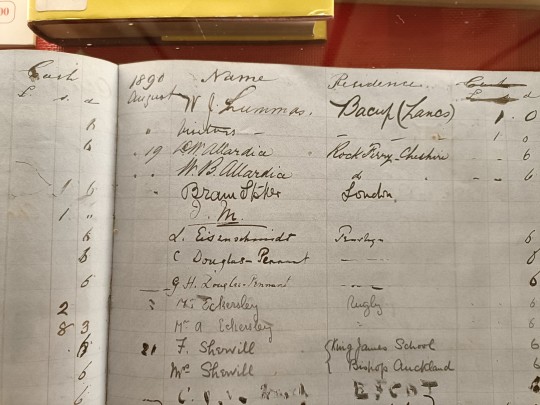 00
Cash 1890 Name Residence
£. s. d August W J. Lummas. Bacup (Lancs) 1. 0
6 " Visitors - - - 1 0
6 " 19 D.W. Allardice Rock Ferry, Cheshire - 6
W. B. Allardice do - 6
1 6 Bram Stoker London.
1 " J. M.
6 L. Eisenschmidt 6
6 C Douglas-Pennant - - - 6
6 G H. Douglas-Pennant - - - 6
2 Mrs Eckersley Rugby 6
8 3 Mr A Eckersley 6
6 21 F. Sherwill { King James School 6
6 Mrs Sherwill { Bishop Auckland 6
6